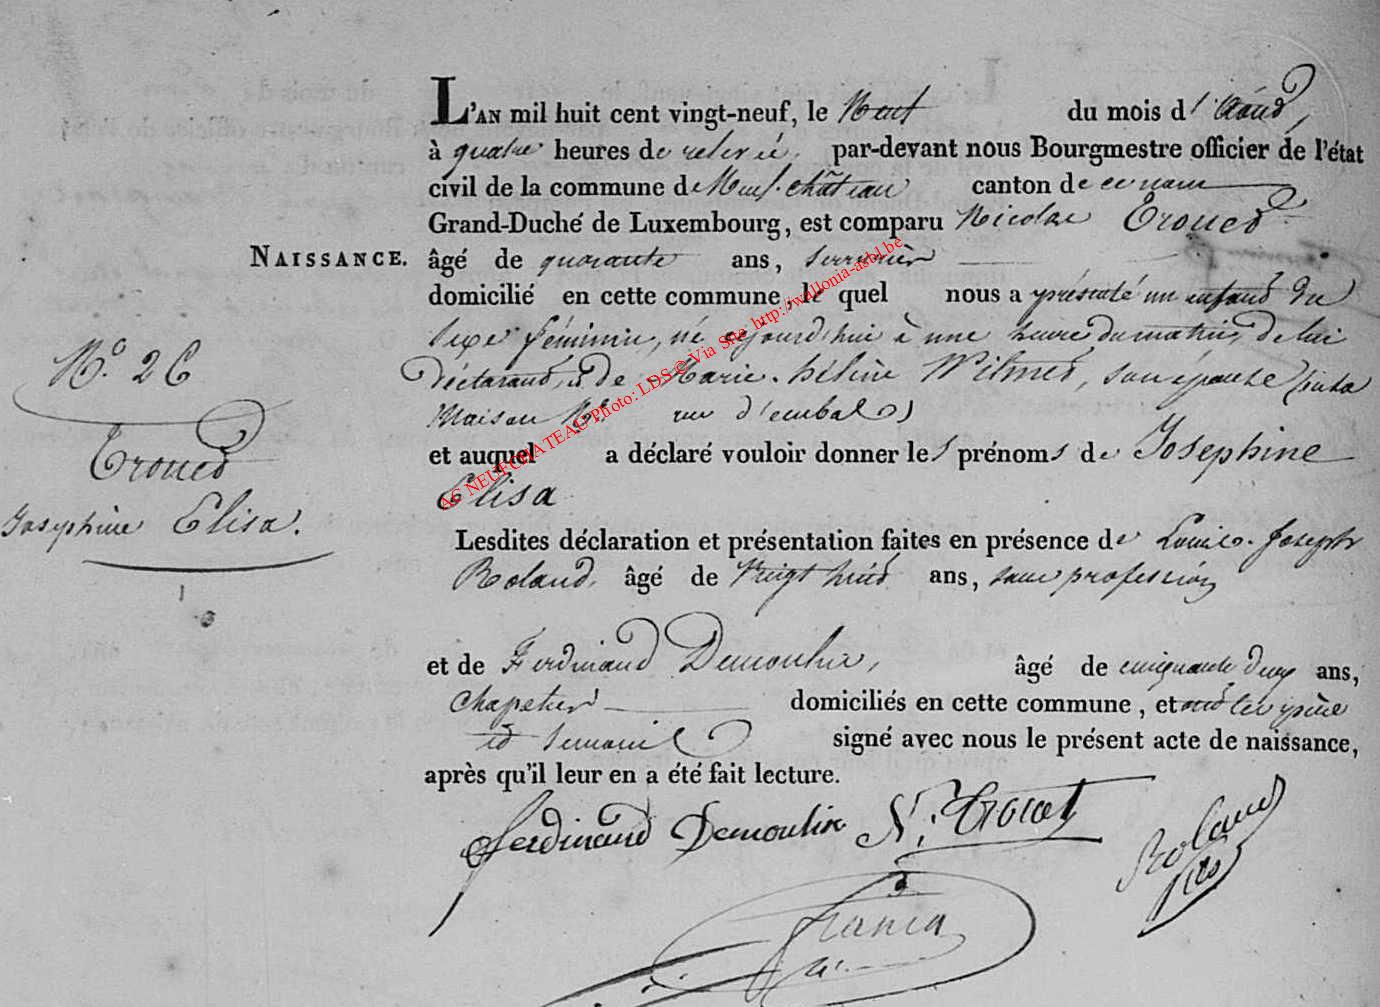 L'AN mil huit cent vingt-neuf, le Neuf du mois d'Août,
à quatre heures de relevée, par-devant nous Bourgmestre officier de l'état
civil de la commune de Neufchâteau canton de ce nom
Grand-Duché de Luxembourg, est comparu Nicolas Trouet
NAISSANCE. âgé de quarante ans, serrurier
domicilié en cette commune, le quel nous a présenté un enfant du
sexe féminin, né aujourd'hui à une heure du matin, de lui
déclarant, & de Marie-hélène Wilmet, son épouse
Maison Nº rue d'
et auquel a déclaré vouloir donner les prénoms de Josephine
Elisa
Nº 26
Trouet
Josephine Elisa.
Lesdites déclaration et présentation faites en présence de Louis-Joseph
Roland, âgé de Vingt huit ans, sans profession
et de Ferdinand Demoulin, âgé de cinquante deux ans,
Chapelier domiciliés en cette commune, et ont les père
et témoins signé avec nous le présent acte de naissance,
après qu'il leur en a été fait lecture.
Ferdinand Demoulin N. Trouet Roland fils
AC NEUFCHATEAU Photo: LDS © Via Site http://wallonia-asbl.be